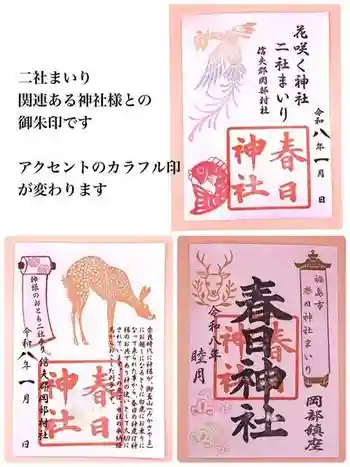 二社まいり
関連ある神社様との
御朱印です
アクセントのカラフル印
が変わります
花咲く神社
二社まいり
信夫郡岡部村社
令和八年一月 日
春日
神社
神様のおとも二社参り
信夫郡岡部村社
令和八年一月 日
春日
神社
奈良時代に神様が、御蓋山(みかさやま)
福島市
春日神社まいり
岡部鎮座
春日神社
令和八年
睦月
春日
神社